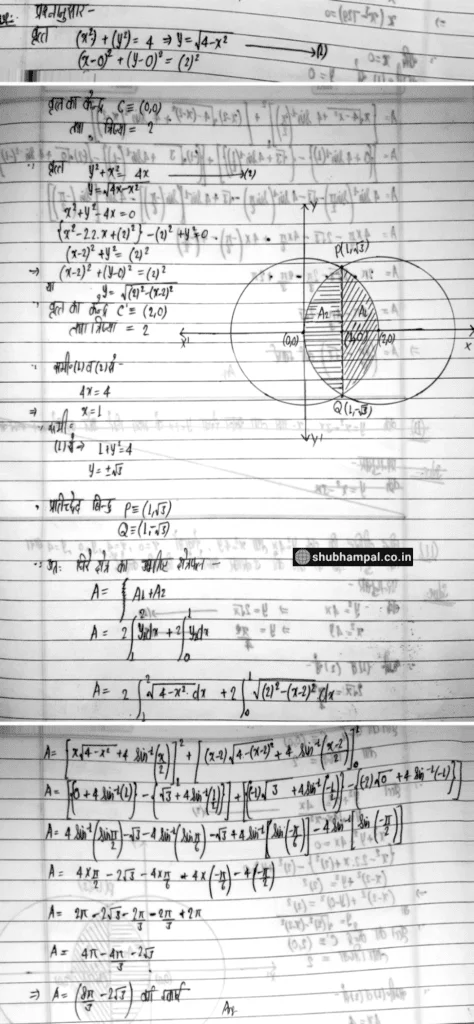 प्रश्नानुसार -
वृत्त (x²) + (y²) = 4 ⇒ y = √4-x² → (1)
(x-0)² + (y-0)² = (2)²
वृत्त का केन्द्र C ≡ (0,0)
तथा त्रिज्या = 2
∵ वृत्त y² + x² = 4x → (2)
y = √4x-x²
x² + y² - 4x = 0
{x² - 2.2.x + (2)²} - (2)² + y² = 0
(x-2)² + y² = (2)²
⇒ (x-2)² + (y-0)² = (2)²
या y = √(2)²-(x-2)²
∵ वृत्त का केन्द्र C' ≡ (2,0)
तथा त्रिज्या = 2
Y
P(1,√3)
A2 A1
(0,0) (1,0) (2,0)
X' X
Q(1,-√3)
Y'
∵ समी० (1) व (2) से -
4x = 4
⇒ x = 1
∵ समी०
(1) से ⇒ 1+y² = 4
y = ±√3
∵ प्रतिच्छेद बिन्दु P ≡ (1,√3)
Q ≡ (1,-√3)
shubhampal.co.in
∵ अतः घिरे क्षेत्र का क्षेत्रफल -
A = ∫ A1 + A2
A = 2∫₁² y dx + 2∫₀¹ y dx
A = 2∫₁² √4-x² dx + 2∫₀¹ √(2)²-(x-2)² dx
A = [x√4-x² + 4 sin⁻¹(x/2)]₁² + [(x-2)√4-(x-2)² + 4 sin⁻¹(x-2/2)]₀¹
A = [{0 + 4 sin⁻¹(1)} - {√3 + 4 sin⁻¹(1/2)}] + [{(-1)√3 + 4 sin⁻¹(-1/2)} - {(-2)√0 + 4 sin⁻¹(-1)}]
A = 4 sin⁻¹(sin π/2) - √3 - 4 sin⁻¹(sin π/6) - √3 + 4 sin⁻¹[sin(-π/6)] - 4 sin⁻¹[sin(-π/2)]
A = 4×π/2 - 2√3 - 4×π/6 + 4×(-π/6) - 4(-π/2)
A = 2π - 2√3 - 2π/3 - 2π/3 + 2π
A = 4π - 4π/3 - 2√3
⇒ A = (8π/3 - 2√3) वर्ग इकाई
Ans